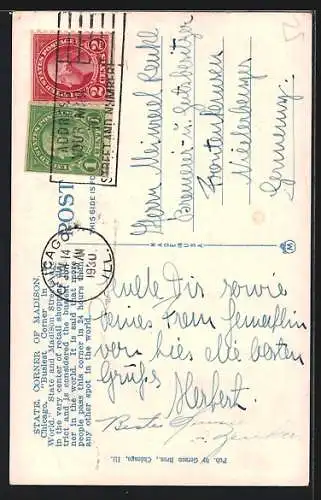 STATE, CORNER OF MADISON,
Chicago. "Busiest Corner in the
World." State and Madison Streets,
in the very center of retail shopping dis-
trict and is considered the busiest cor-
ner in the world. It is said that more
people pass this corner in 24 hours than
any other spot in the world.
POST
THIS SIDE IS FO
MADE IN U.S.A.
M
UNITED STATES POSTAGE
2 CENTS 2
1 CENT 1
ADDRESS
YOUR MAIL
STREET AND NUMBER
CHICAGO, ILL.
14
AM
1930
Herrn
Brauerei- u. Gutsbesitzer
Niederbayern
Germany.
Dir sowie
Deiner Frau Gemahlin
von hier alle besten
Grüße
Herbert.
Beste
Pub. by Gerson Bros., Chicago, Ill.